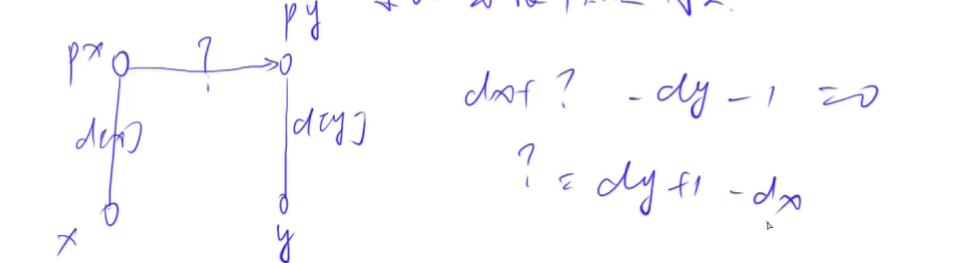 py
px
?
d[x]
d[y]
x
y
dx+? - dy - 1 = 0
? = dy+1 - dx